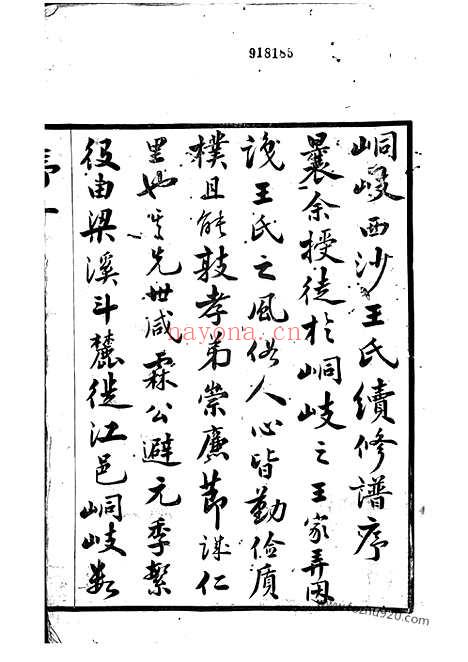 918185
峒岐西沙王氏續修譜序
曩余授徒於峒岐之王家弄因
識王氏之風俗人心皆勤儉質
樸且能敦孝弟崇廉節誠仁
里也其先世咸霖公避元季繁
役由梁溪斗麓徙江邑峒岐數
序一
nayona.cn
www.fozhu920.com